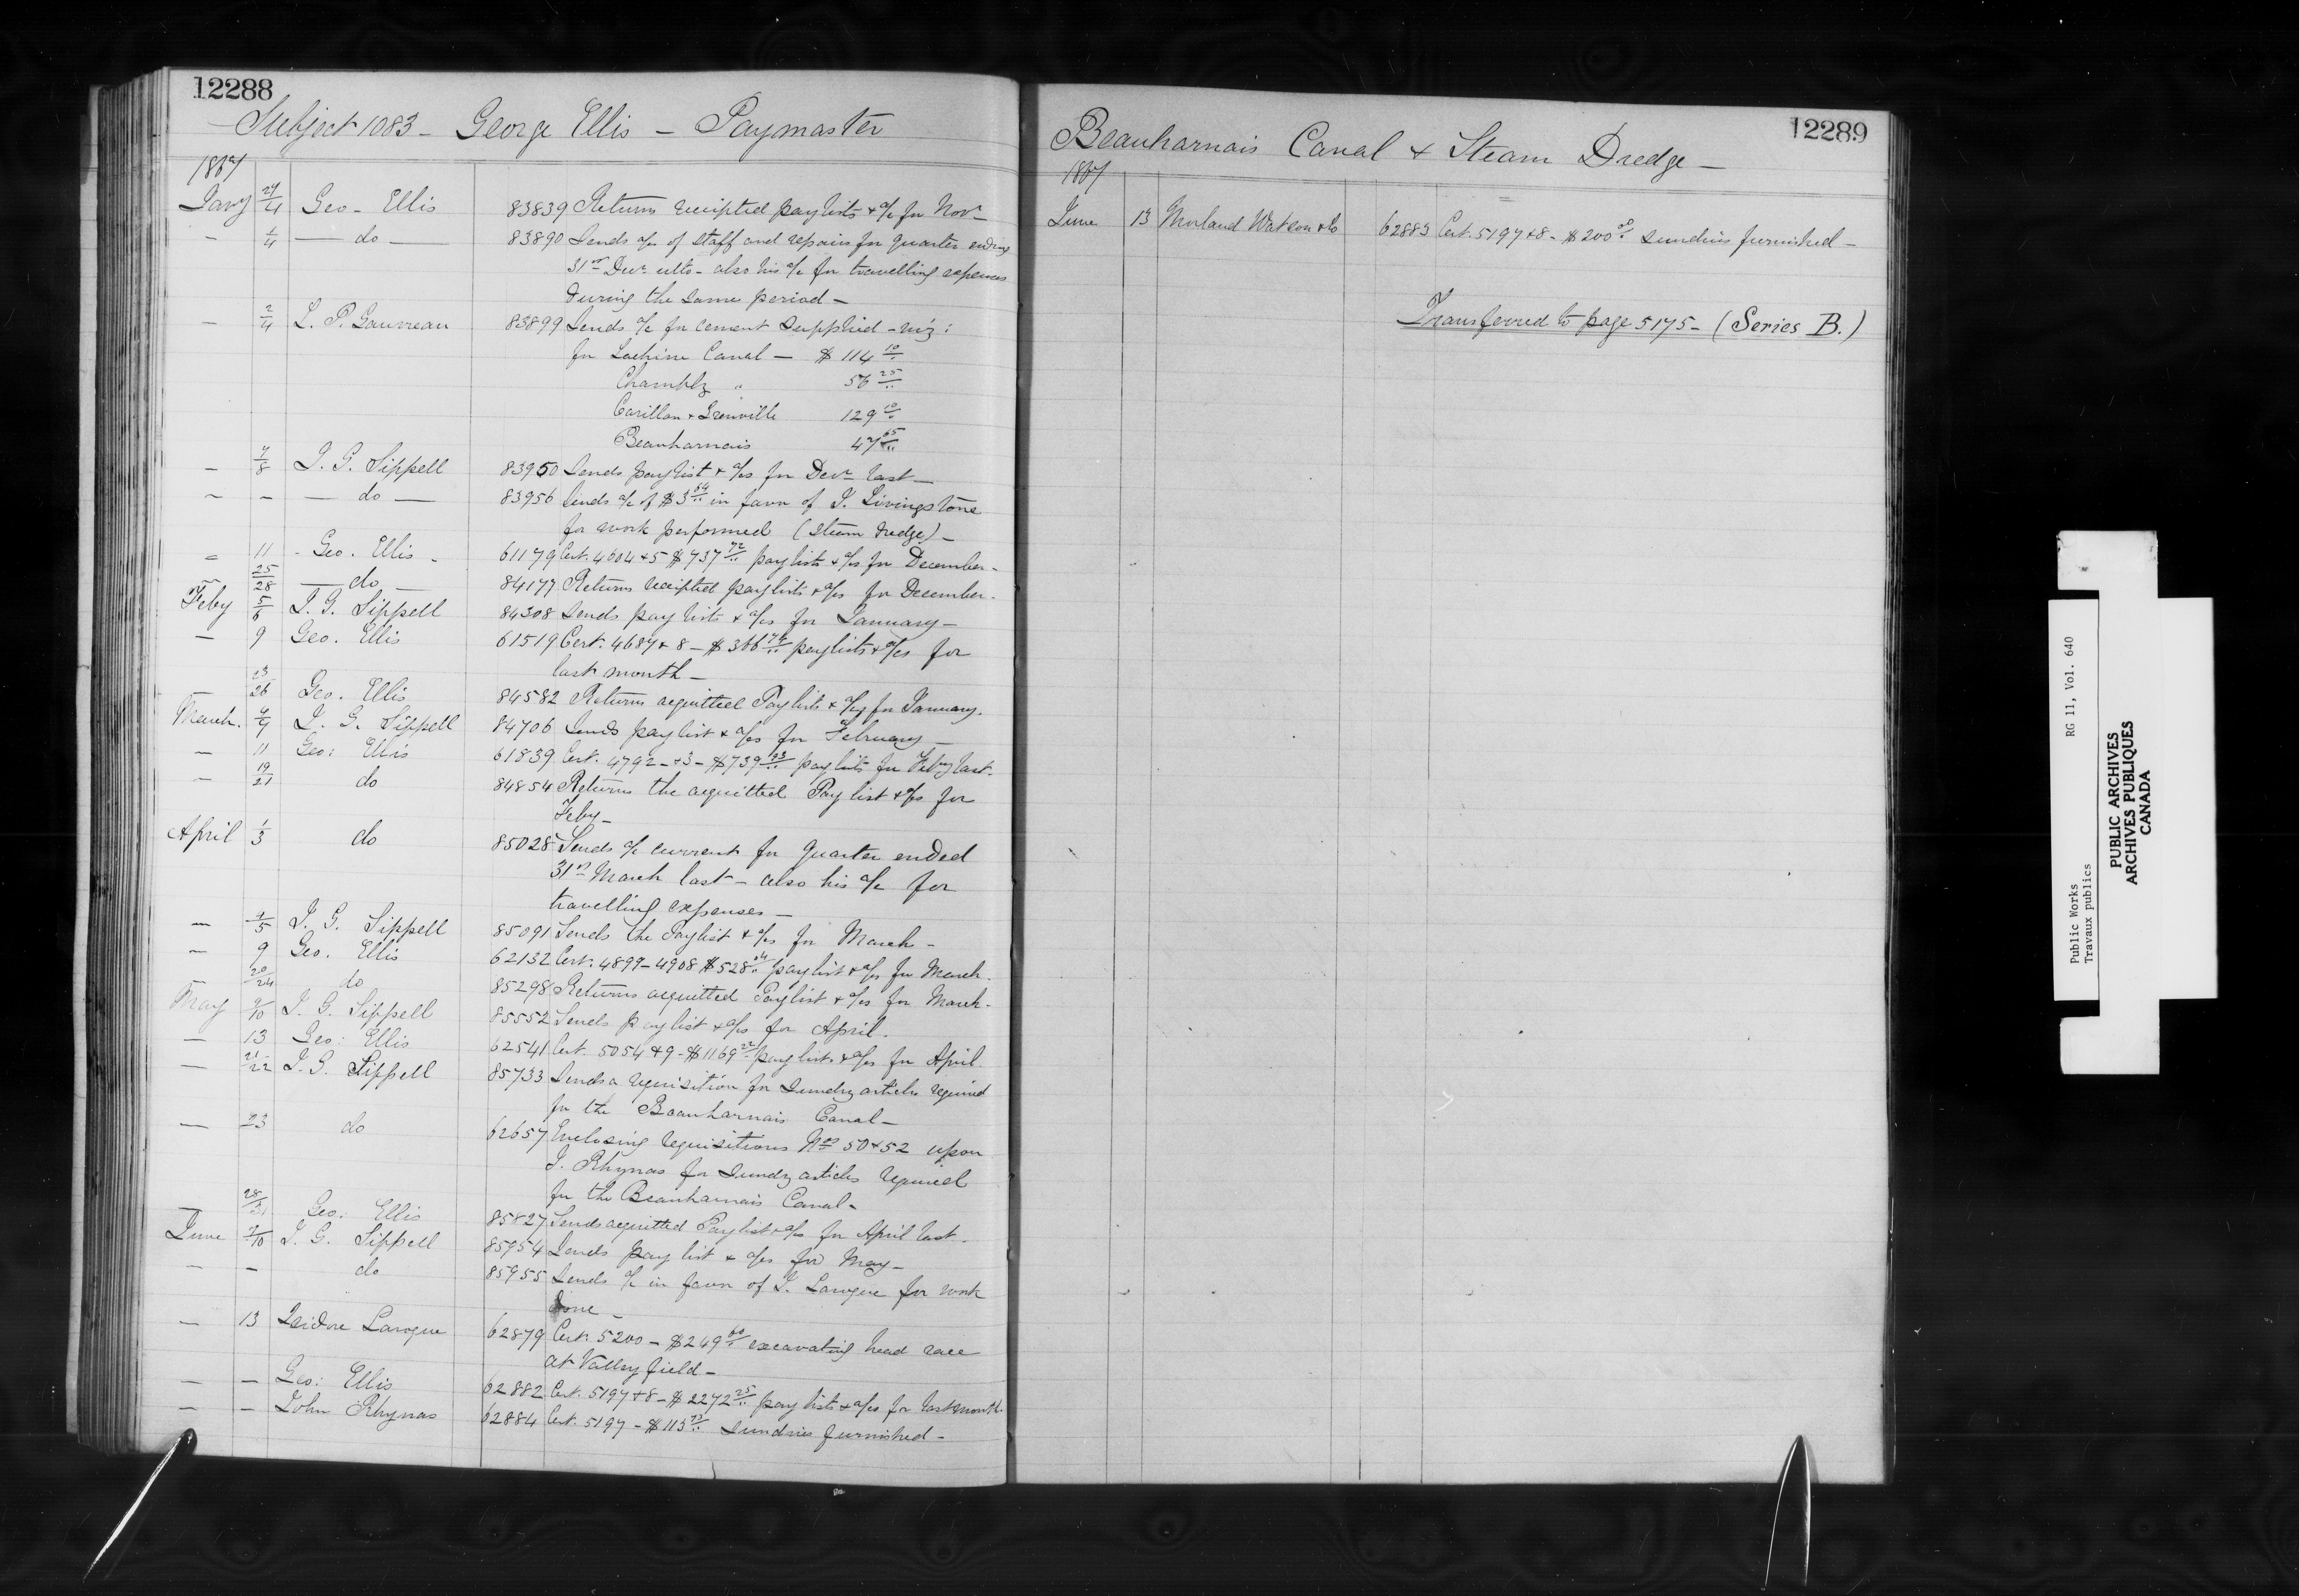 12288
Subject 1083 - George Ellis - Paymaster
1867
Jany 27/4 Geo - Ellis 83839 Returns receipted pay lists + a/c for Novr
- 1/4 - do - 83890 Sends a/c of staff and repairs for quarter ending
31st Decr ulto - also his a/c for travelling expenses
during the same period -
- 2/4 L. P. Gauvreau 83899 Sends a/c for cement supplied - viz:
for Lachine Canal - $ 114 10/..
Chambly " 56 25/..
Carillon + Grenville 129 10/..
Beauharnais 47 65/..
- 7/8 J. G. Sippell 83950 Sends pay list + a/cs for Decr last -
- - - do - 83956 Sends a/c of $3 64/.. in favor of J. Livingstone
for work performed (Steam Dredge) -
- 11 - Geo. Ellis - 61179 Cert. 4604 + 5 $737 72/.. pay lists + a/cs for December -
- 25/28 - do - 84177 Returns receipted pay lists + a/cs for December -
Feby 5/6 J. G. Sippell 84308 Sends pay lists + a/cs for January -
- 9 Geo. Ellis 61519 Cert. 4687 + 8 - $366 74/.. pay lists + a/cs for
last month -
23/26 Geo. Ellis 84582 Returns acquitted Pay lists + a/cs for January.
March. J. G. Sippell 84706 Sends pay list + a/cs for February -
- 11 Geo: Ellis 61839 Cert. 4792 - + 3 - $739 93/.. pay lists for Feby last -
- 19/21 do 84854 Returns the acquitted Pay list + a/cs for
Feby -
April 1/3 do 85028 Sends a/c current for quarter ended
31st March last - also his a/c for
travelling expenses -
- 4/5 J. G. Sippell 85091 Sends the Paylist + a/cs for March -
- 9 Geo. Ellis 62132 Cert. 4899 - 4908 $528 04/.. pay list + a/cs for March.
20/24 do 85298 Returns acquitted Paylist + a/cs for March -
May 9/10 J. G. Sippell 85552 Sends pay list + a/cs for April.
- 13 Geo: Ellis 62541 Cert. 5054 + 9 - $1169 22/.. pay lists + a/cs for April.
- 21/22 J. G. Sippell 85733 Sends a requisition for sundry articles required
for the Beauharnais Canal -
- 23 do 62657 Enclosing requisitions Nos 50 + 52 upon
J. Rhynas for sundry articles required
for the Beauharnais Canal -
- 28/31 Geo: Ellis 85827 Sends acquitted Paylist + a/cs for April last.
June 7/10 J. G. Sippell 85954 Sends pay list + a/cs for May -
- - do 85955 Sends a/c in favor of I. Larogue for work
done -
- 13 Isidore Larogue 62879 Cert. 5200 - $249 60/.. excavating head race
at Valleyfield -
- - Geo: Ellis 62882 Cert. 5197 + 8 - $2272 25/.. pay lists + a/cs for last month -
- - John Rhynas 62884 Cert. 5197 - $113 73/.. Sundries furnished -
12289
Beauharnais Canal & Steam Dredge -
1867
June 13 Morland Watson & Co 62883 Cert. 5197 + 8 - $200 00/.. sundries furnished -
Transferred to page 5175 - (Series B.)
Public Works RG 11, Vol. 640
Travaux publics
PUBLIC ARCHIVES
ARCHIVES PUBLIQUES
CANADA